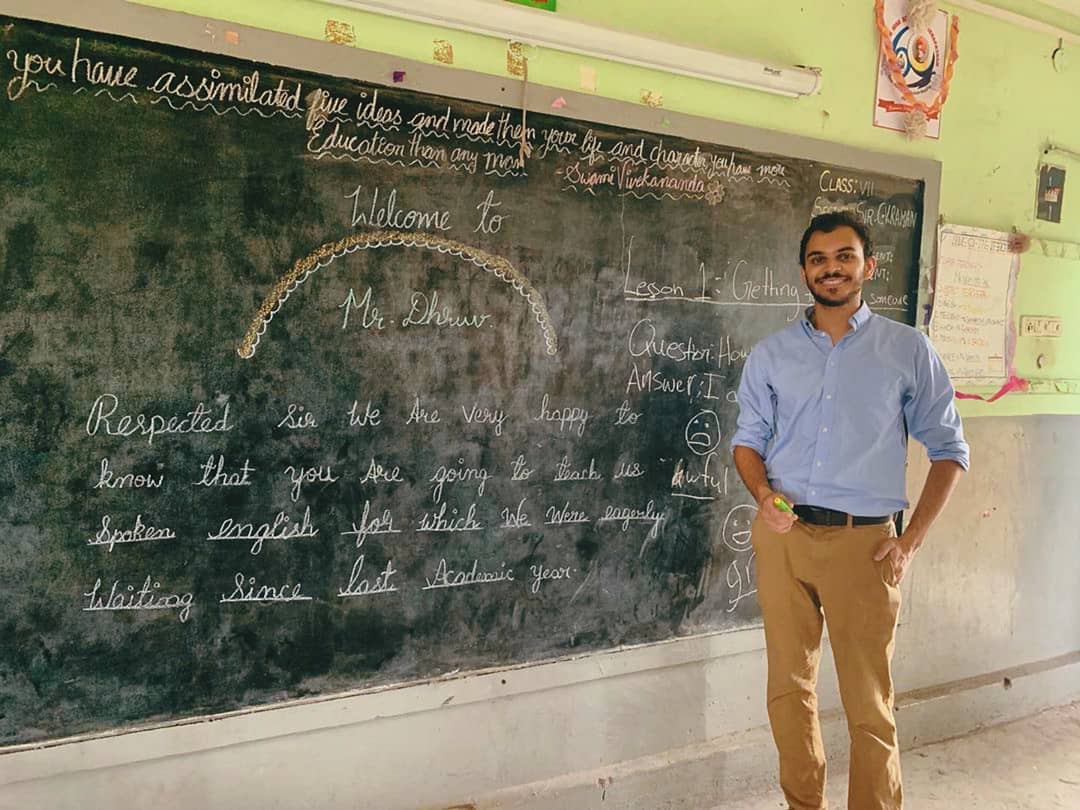 you have assimilated five ideas and made them your life and character you have more
Education than any man
- Swami Vivekananda
Welcome to
Mr. Dhruv.
Respected Sir We Are very happy to
know that you Are going to teach us
Spoken english for which We Were eagerly
Waiting Since last Academic year.
CLASS: VII
SIR. C.V.RAMAN
Lesson 1: Getting
someone
Question: How
Answer: I a
awful